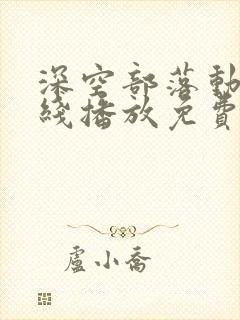 深空部落動
綫播放免費
盧小喬